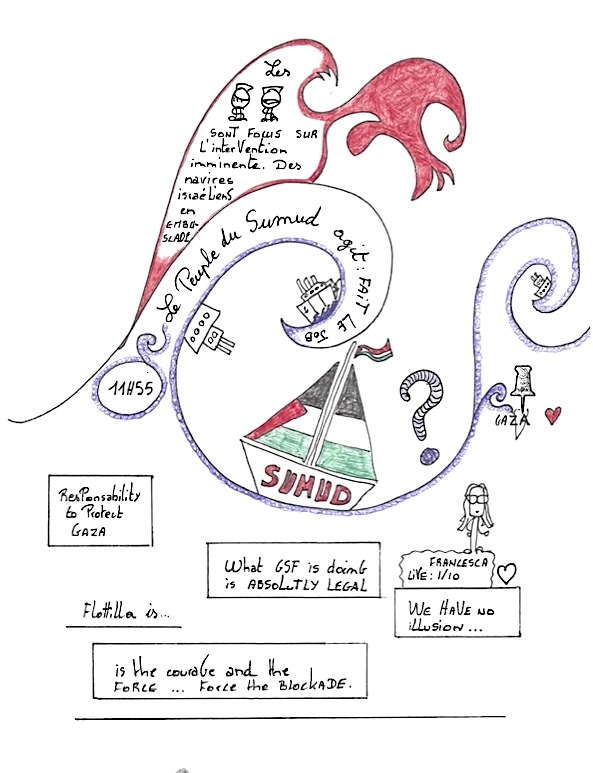 Les
SONT FOCUS SUR
L'interVention
imminente. Des
navires
israéLiens
en
EMBU-
SCADE
Le Peuple du Sumud agit : FAIT LE JOB
11H55
GAZA
SUMUD
ResPonsability
to Protect
GAZA
What GSF is doing
is ABSOLUTLY LEGAL
FRANCESCA
LiVE : 1/10
WE HAVE NO
iLLUSION ...
Flottilla is...
is the couraGe and the
FORCE ... Force the BLOCKADE.